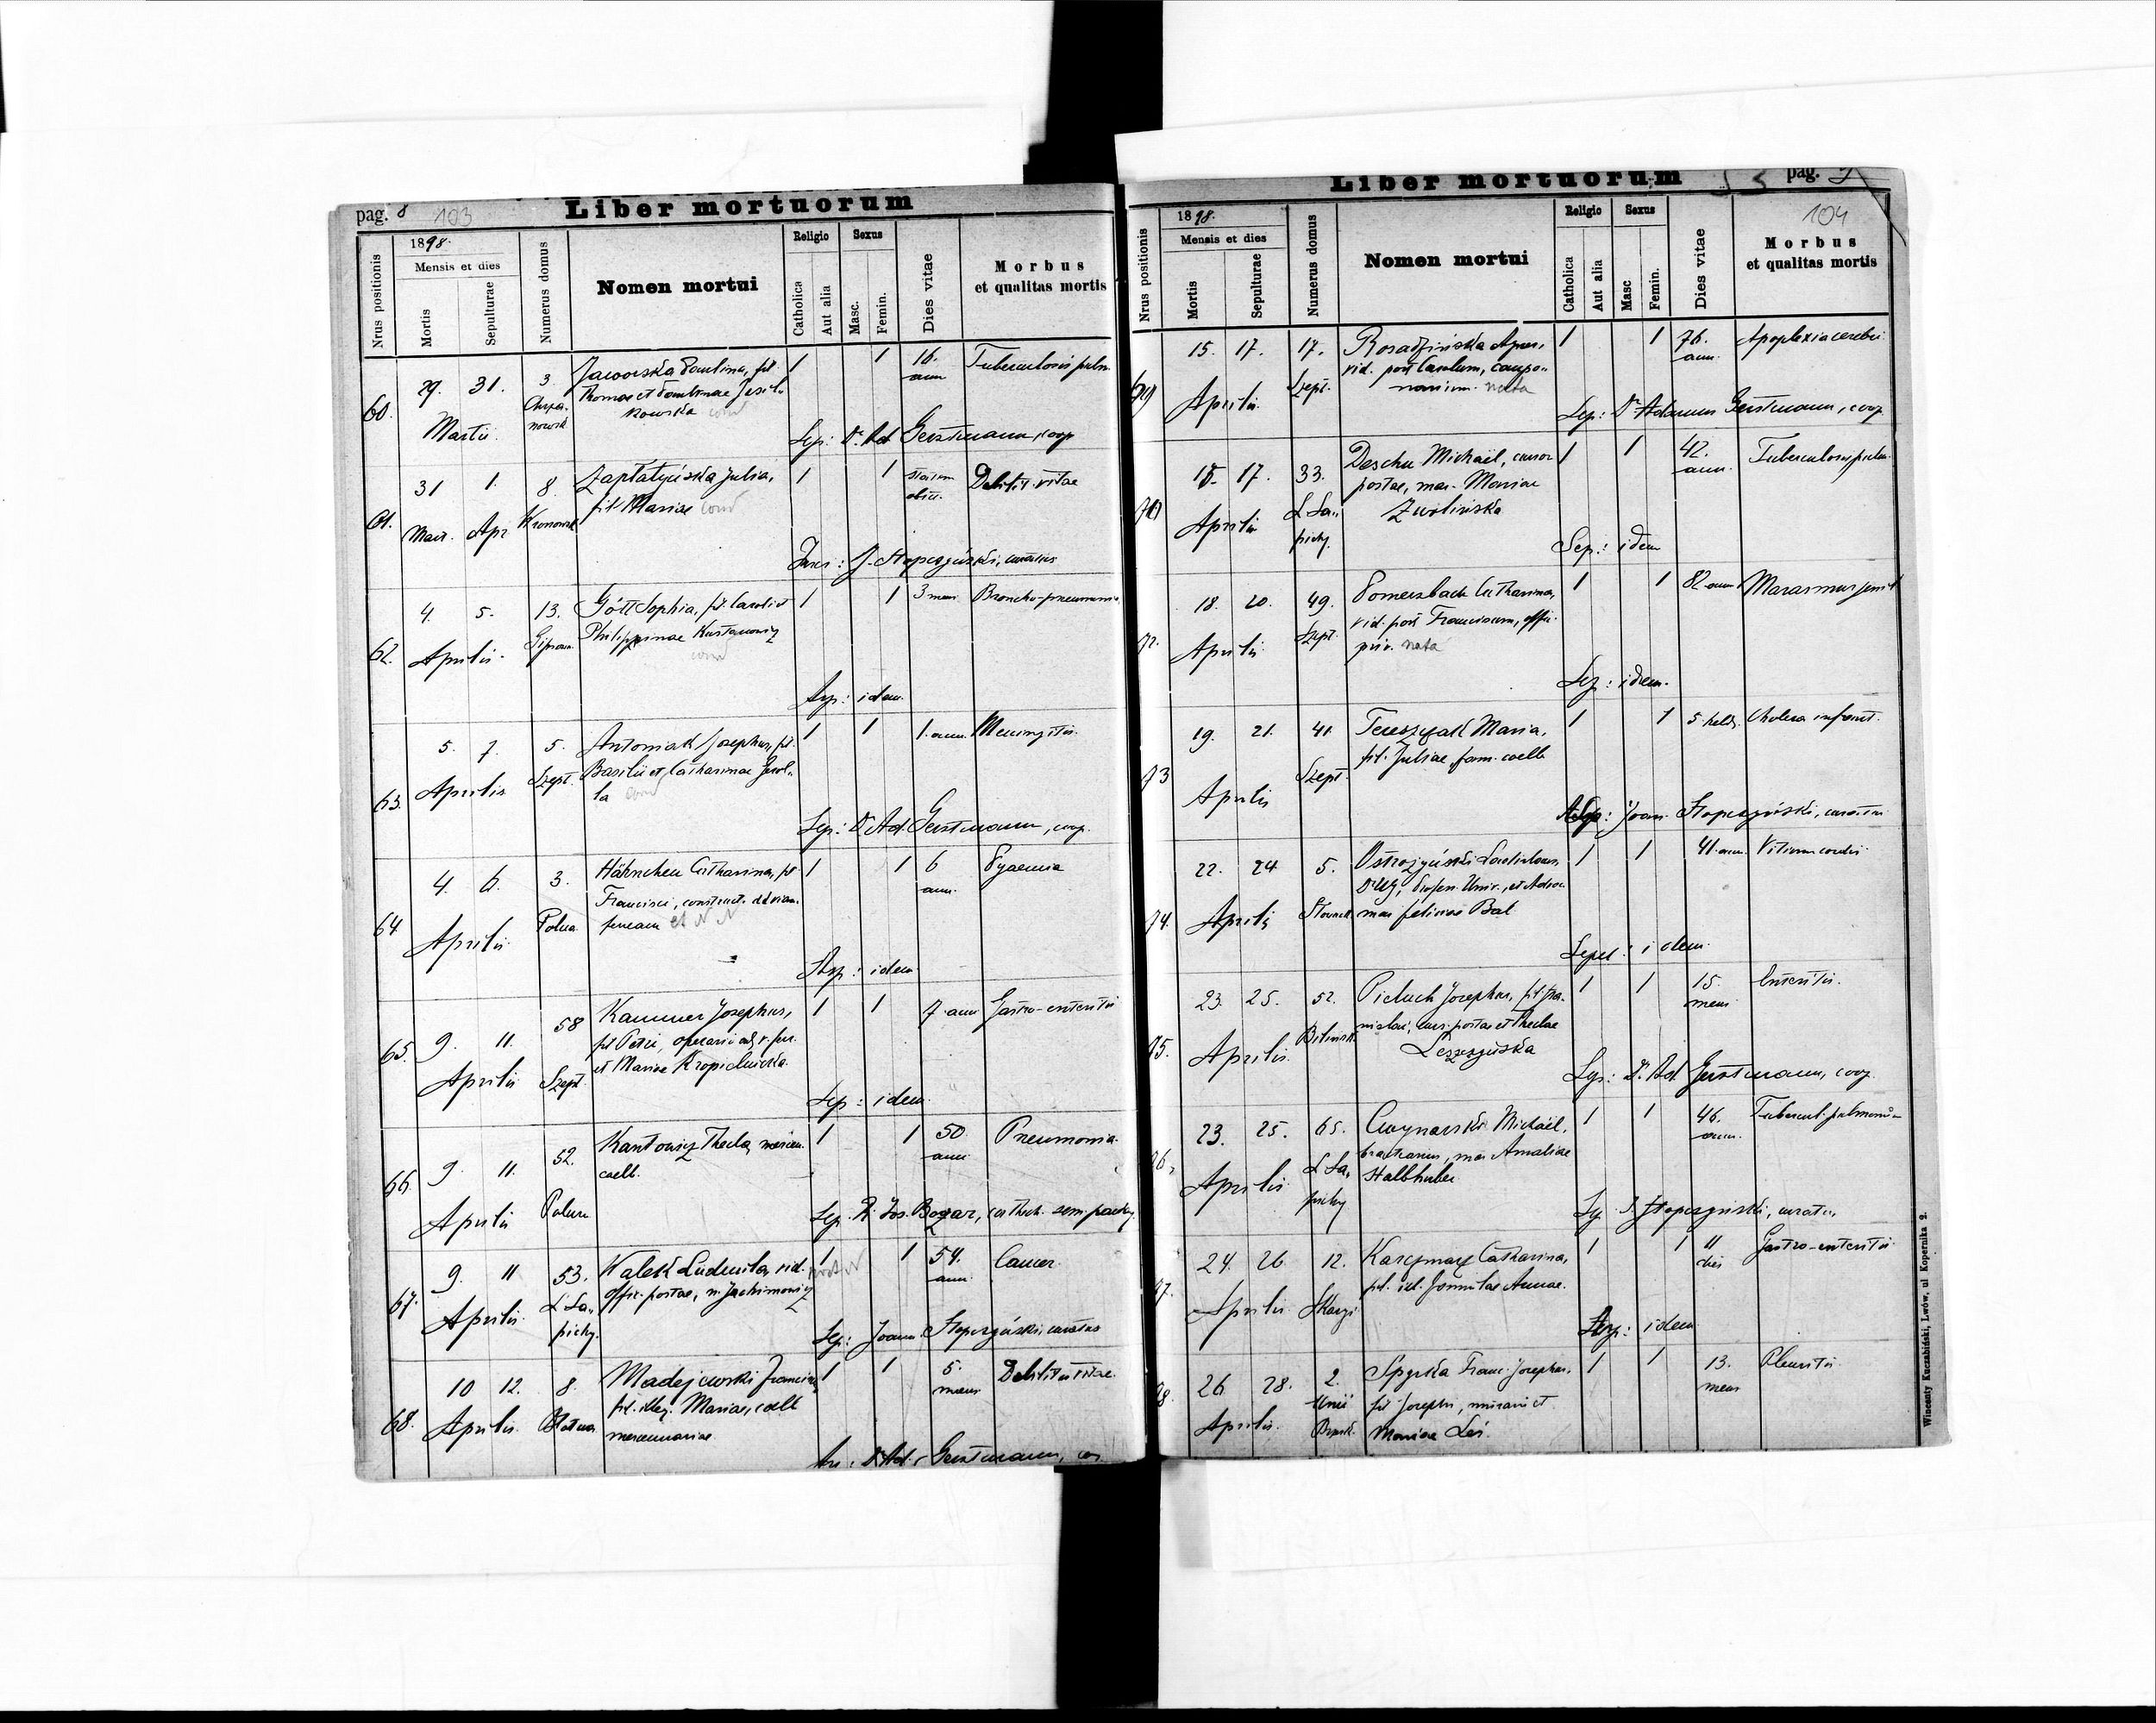 pag. 8 103
Liber mortuorum
Nrus positionis
1898.
Mensis et dies
Mortis
Sepulturae
Numerus domus
Nomen mortui
Religio
Catholica
Aut alia
Sexus
Masc.
Femin.
Dies vitae
Morbus
et qualitas mortis
60. 29. 31. 3 Jaworska Paulina, fil 1 1 16. Tuberculosis pulm.
Thomae et Paulinae
Martii
ann
Sep: Dr. Ad. Gerstmann, coop
61. 31 1. 8. Zapłatyńska Julia, 1 1 statim Debilit. vitae
Mart. Apr
fil Mariae
obiit.
J. Stopczyński, curatus
62. 4. 5. 13. Gött Sophia, fil. Caroli et 1 1 3 men Broncho-pneumonia
Aprilis
Philippinae
Asp: idem.
63. 5. 7. 5. Antoniak Josephus, fil. 1 1 1. ann. Meningitis.
Aprilis Szept. Basilii et Catharinae
Sep: Dr Ad. Gerstmann, coop.
64 4. 6. 3. Hähnchen Catharina, fil 1 1 6 Pyaemia
Francisci, construct. ad viam
Aprilis Polna ferream et N N
ann.
Asp: idem
65. 9. 11. 58 Kammer Josephus, 1 1 7 ann Gastro-enteritis
fil Petri, operarii ad v. fer.
Aprilis Szept. et Mariae Kropielnicka.
Sep: idem.
66. 9. 11. 52. Kantowicz Thecla, 1 1 50. Pneumonia.
coelb.
ann
Aprilis Polna
Sep. R. Jos. Bogar, catech. sem. paedg.
67. 9. 11 53. Kalek Ludmila, vid. post N 1 1 54. Cancer.
offic. postae, n. Jachimowicz
ann.
Aprilis L Sa-
pichy.
Sep: Joann. Stopczyński, curatus
68. 10 12. 8. Madejewski Francis. 1 1 5. Debilitas vitae.
fil. illeg. Mariae, coelb
mens
Aprilis
mercennariae.
Dr. Ad. Gerstmann,
pag. 9
104
Liber mortuorum
Nrus positionis
1898.
Mensis et dies
Mortis
Sepulturae
Numerus domus
Nomen mortui
Religio
Catholica
Aut alia
Sexus
Masc
Femin.
Dies vitae
Morbus
et qualitas mortis
15. 17. 17. Rosadzińska Agnes, 1 1 76. Apoplexia cerebri
vid. post Carolum, campo-
ann.
Aprilis Szept. narium. nata
Sep: Dr Adamus Gerstmann, coop
15. 17. 33. Deschu Michaël, cursor 1 1 42. Tuberculosis pulm.
postae, mar. Mariae
ann.
Aprilis L Sa-
pichy. Zwolińska
Sep.: idem
18. 20. 49. Pomersbach Catharina, 1 1 82 ann Marasmus senil
vid. post Franciscum, offic.
Aprilis Szept. priv. nata
Sep: idem.
73 19. 21. 41 Tereszczak Maria, 1 1 5 hebd. Cholera infant.
fil. Juliae fam. coelb
Aprilis Szept.
Joan. Stopczyński, curatus
74. 22. 24 5. Ostrożyński Ladislaus, 1 1 41. ann. Vitium cordis
Profes. Univ., et Advoc.
Aprilis mar Feliciae Bal
Sepel: idem.
75. 23. 25. 52. Pieluch Josephus, fil. 1 1 15. Enteritis.
curs. postae et Theclae
mens
Aprilis Bilinsk. Leszczyńska
Sep: Dr. Ad. Gerstmann, coop.
23. 25. 65. Cwynarski Michaël, 1 1 46. Tubercul. pulmonum
mar Amaliae
ann.
Aprilis L Sa-
pichy Halbhuber
Sep J Stopczyński, curatus
24. 26 12. Karczmarz Catharina, 1 1 11 Gastro-enteritis
famulae Annae.
dies
Aprilis
Asp: idem
26. 28. 2. Spyrka Franc. Josephus, 1 1 13. Pleuritis.
Unii fil Josephi, murarii et
mens
Aprilis. Mariae Leś.
Wincenty Kuczabiński, Lwów, ul Kopernika 2.